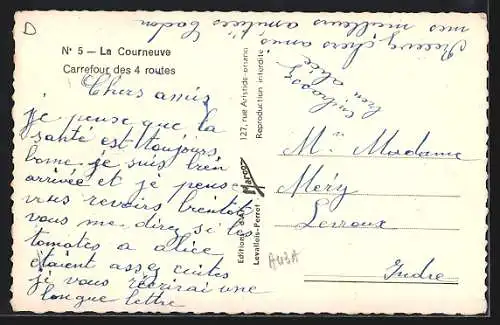 D
N° 5 — La Courneuve
Carrefour des 4 routes
Chers amis
je pense que la
santé est toujours
bonne je suis bien
arrivée et je pense
vous revoirs bientôt
vous me direz si les
tomates a alice
étaient assez cuites
je vous écrirai une
longue lettre
Recevez chers amis
mes meilleurs amitiées
embrassez
bien alice
127, rue Aristide-Briand
Reproduction interdite
Editions d'Art
Levallois-Perret
Marco
M. Madame
Méry
Levroux
Indre